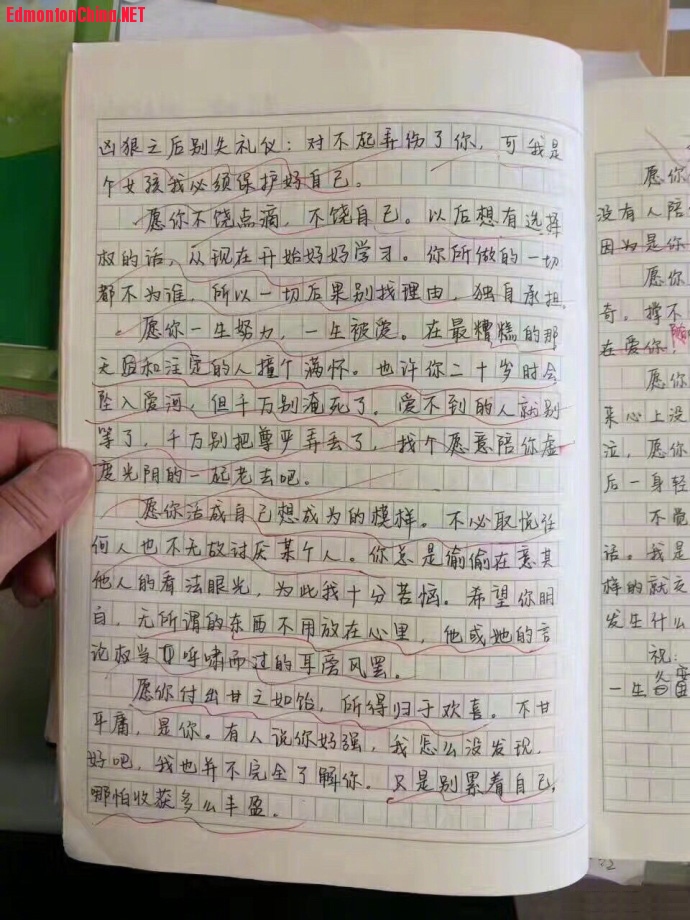 EdmontonChina.NET
凶狠之后别失礼仪：对不起弄伤了你，可我是
个女孩我必须保护好自己。
愿你不饶点痛，不饶自己。以后想有选择
权的话，从现在开始好好学习。你所做的一切
都不为谁，所以一切后果别找理由，独自承担。
愿你一生努力，一生被爱。在最糟糕的那
天和注定的人撞个满怀。也许你二十岁时会
坠入爱河，但千万别淹死了，爱不到的人就别
等了，千万别把尊严弄丢了，找个愿意陪你虚
度光阴的一起老去吧。
愿你活成自己想成为的模样。不必取悦任
何人也不无故讨厌某个人。你总是偷偷在意其
他人的看法眼光，为此我十分苦恼。希望你明
白，无所谓的东西不用放在心里，他或她的言
论权当呼啸而过的耳旁风罢。
愿你付出甘之如饴，所得归于欢喜。不甘
平庸，是你。有人说你好强，我怎么没发现，
好吧，我也并不完全了解你。只是别累着自己，
哪怕收获多么丰盈。
愿你
没有人陪
因为是你
愿你
奇，撑不
在爱你！
愿你
来心上没
泣，愿你
后一身轻
不觉
话。我是
样的就交
发生什么
祝：
一生